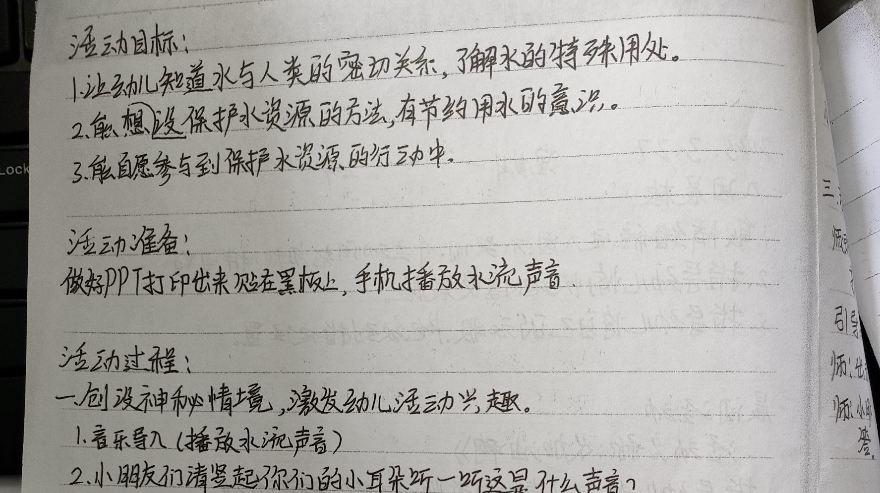 Lock
活动目标:
1.让幼儿知道水与人类的密切关系,了解水的特殊用处。
2.能想设保护水资源的方法,有节约用水的意识。
3.能自愿参与到保护水资源的行动中。
活动准备:
做好PPT打印出来贴在黑板上,手机播放水流声音.
活动过程:
一.创设神秘情境,激发幼儿活动兴趣。
1.音乐导入(播放水流声音)
2.小朋友们请竖起你们的小耳朵听一听这是什么声音?
三.
引导
师:
师:小朋
答